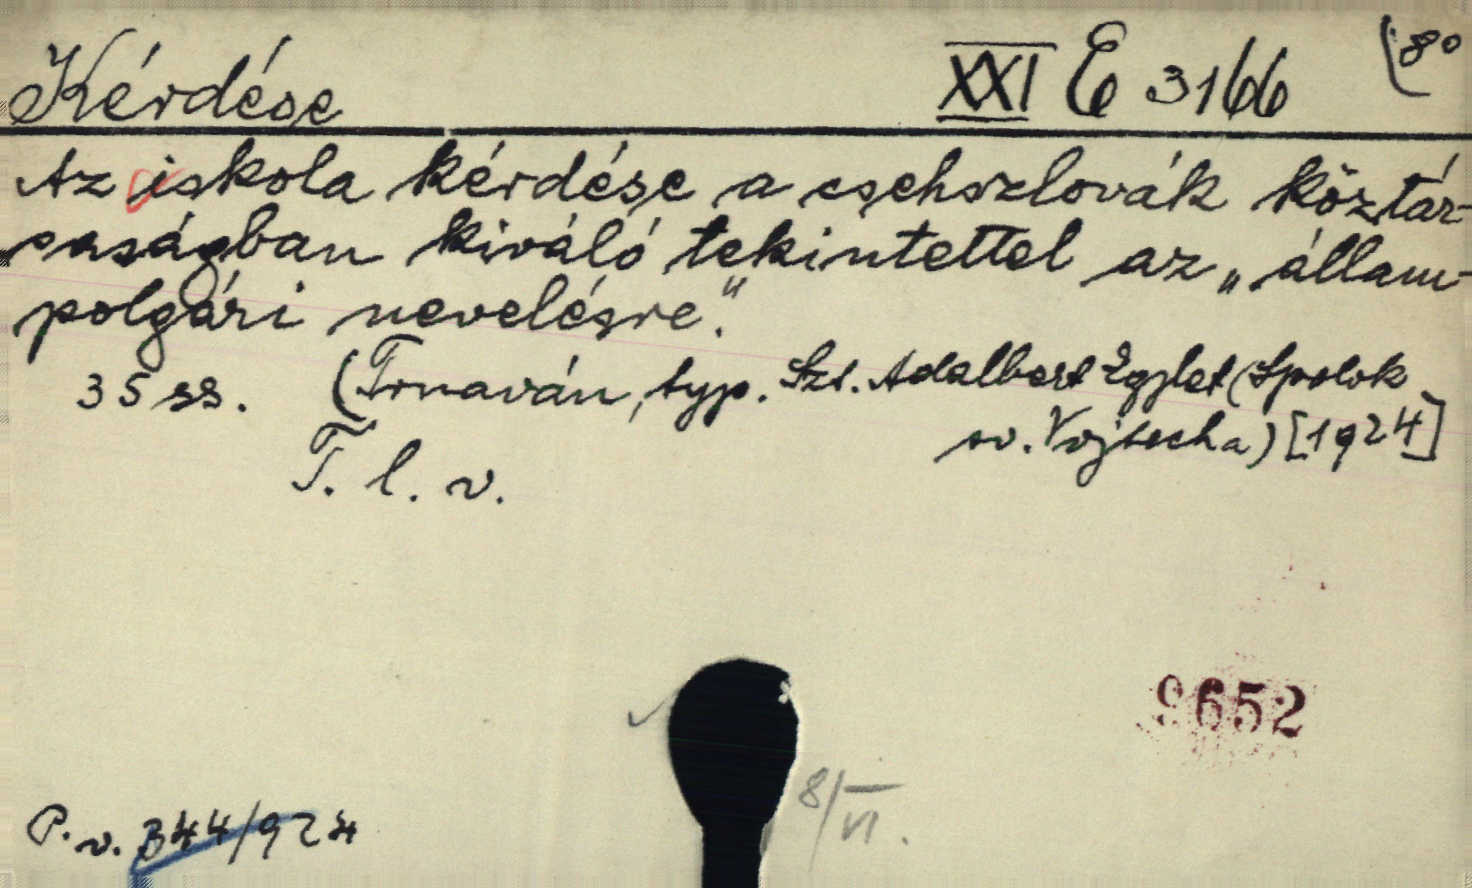 Kérdése XXI E 3166 (8°
Az iskola kérdése a csehszlovák köztár-
saságban kiváló tekintettel az „állam-
polgári nevelésre."
35 ss. (Trnaván, typ. Szt. Adalbert Egylet (Spolok
sv. Vojtecha) [1924]
T. l. v.
9652
8/VI.
P. v. 344/924